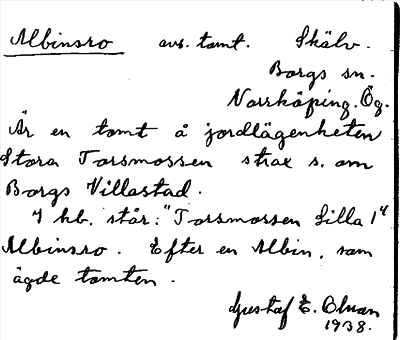 Albinsro avs. tomt. Skälv.
Borgs sn.
Norrköping. Ög.
Är en tomt å jordlägenheten
Stora Torsmossen strax s. om
Borgs Villastad.
I hb. står: "Torsmossen Lilla 1"
Albinsro. Efter en Albin, som
ägde tomten.
Gustaf E. Olman
1938.